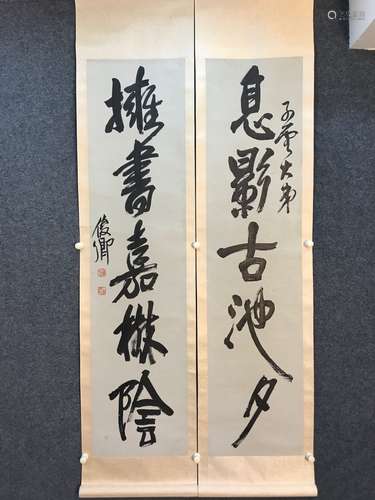 子雲大弟
息影古池夕
擁書嘉樹陰
俊卿